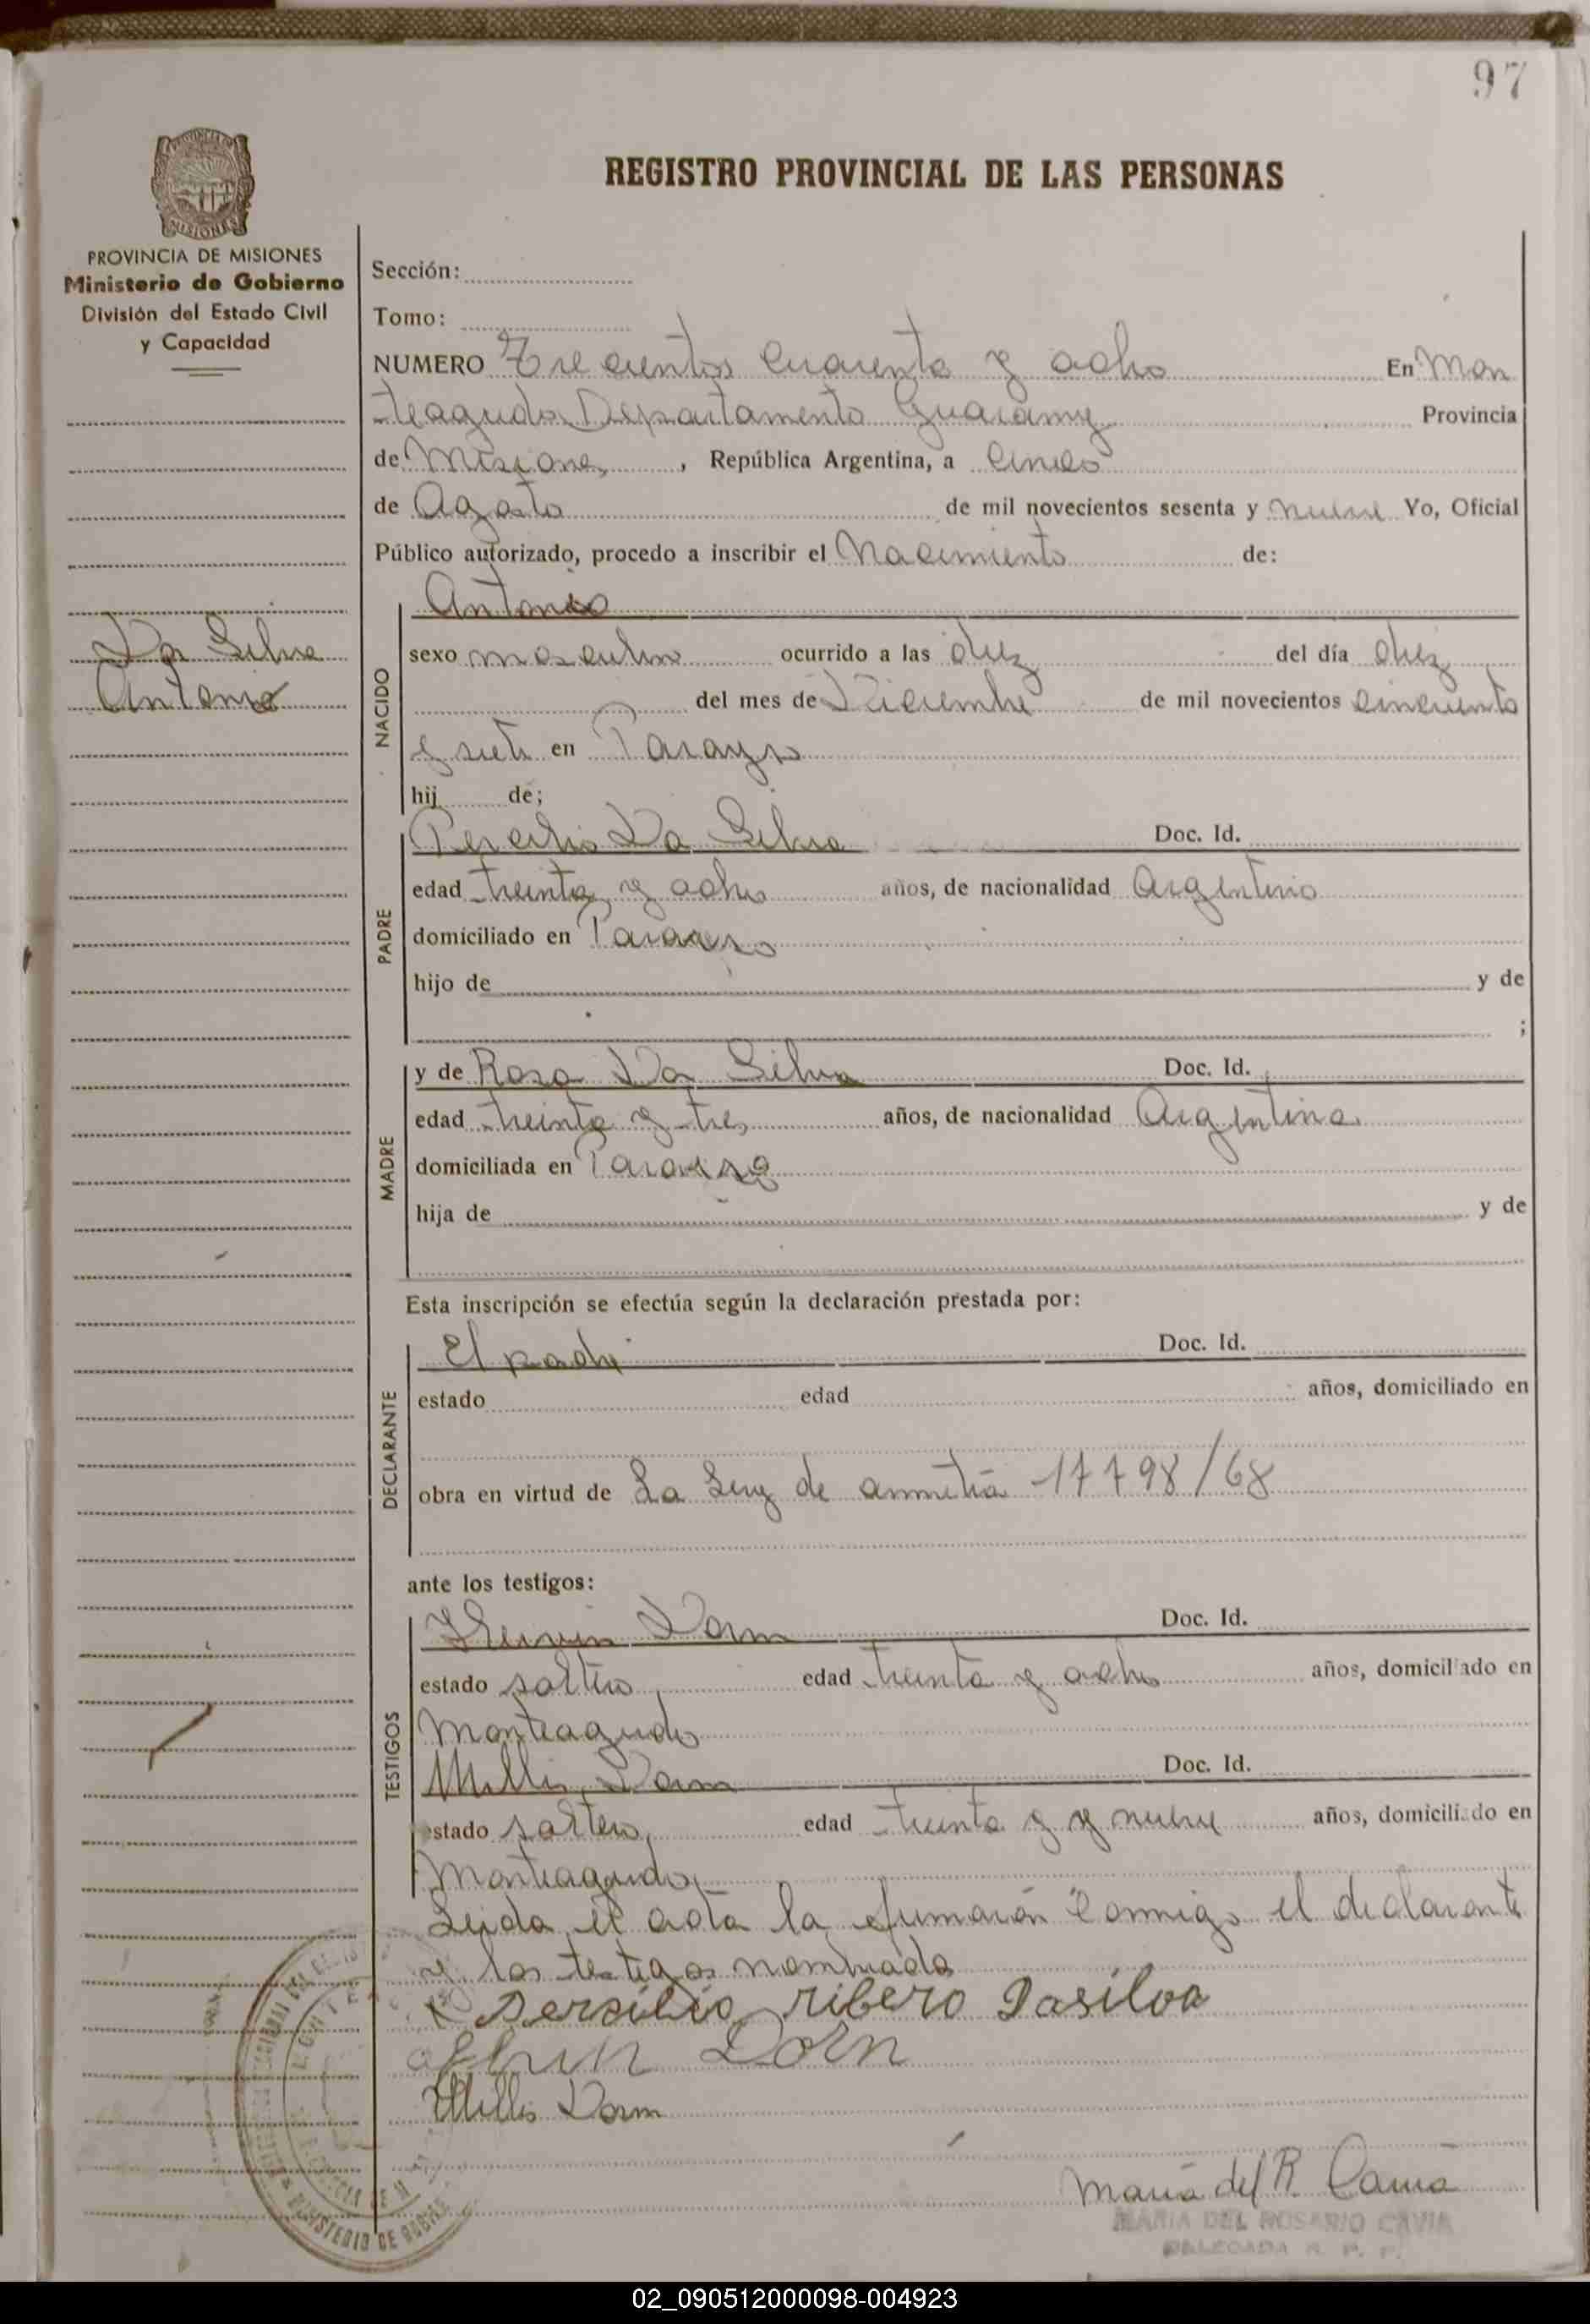 97
REGISTRO PROVINCIAL DE LAS PERSONAS
PROVINCIA DE MISIONES
Ministerio de Gobierno
División del Estado Civil
y Capacidad
Da Silva
Antonio
Sección:
Tomo:
NUMERO Trecientos Cuarenta y ocho En Mon
teagudo Departamento Guarany Provincia
de Misiones, República Argentina, a Cinco
de Agosto de mil novecientos sesenta y nueve Yo, Oficial
Público autorizado, procedo a inscribir el Nacimiento de:
NACIDO
Antonio
sexo masculino ocurrido a las diez del día diez
del mes de Diciembre de mil novecientos cincuenta
y siete en Parayso
hij de;
PADRE
Percilio Da Silva Doc. Id.
edad treinta y ocho años, de nacionalidad Argentino
domiciliado en Parayso
hijo de y de
;
MADRE
y de Rosa Da Silva Doc. Id.
edad treinta y tres años, de nacionalidad Argentina
domiciliada en
hija de y de
Esta inscripción se efectúa según la declaración prestada por:
DECLARANTE
El padre Doc. Id.
estado edad años, domiciliado en
obra en virtud de La Ley de 17798/68
ante los testigos:
TESTIGOS
Dorn Doc. Id.
estado soltero, edad treinta y ocho años, domiciliado en
Monteagudo
Dorn Doc. Id.
estado soltero, edad treinta y y nueve años, domiciliado en
Monteagudo,
Leida el acta la firmarón Conmigo el declarante
y los testigos nombrados
Persilio ribero Dasilva
Dorn
Dorn
María del R. Cavia
MARIA DEL ROSARIO CAVIA
DELEGADA R. P. P.
MINISTERIO DE
02_090512000098-004923